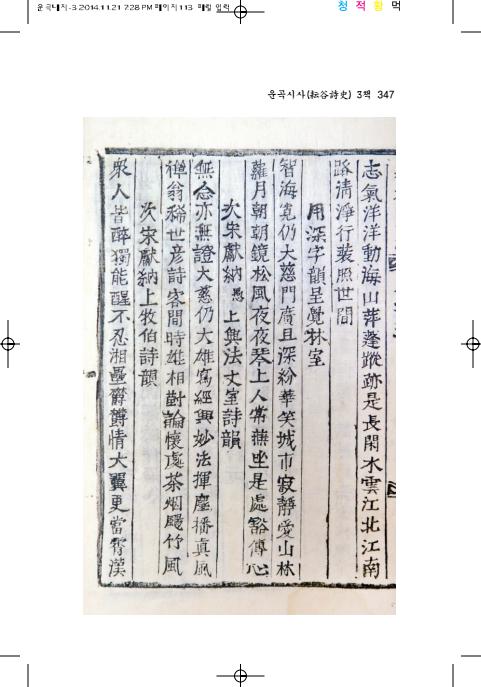 운곡내지-3 2014.11.21 7:28 PM 페이지113 매일 입력
청 적 황 먹
운곡시사(耘谷詩史) 3책 347
志氣洋洋動海山萍蓬蹤跡是長閑水雲江北江南
路淸淨行裝照世間
用深字韻呈覺林室
智海寬仍大慈門廣且深紛華笑城市寂靜愛山林
蘿月朝朝鏡松風夜夜琴上人常燕坐是處豁傳心
次宋獻納愚上興法丈室詩韻
無念亦無證大慈仍大雄寫經興妙法揮麈播眞風
禪翁稀世彦詩客間時雄相對論懷處茶烟颺竹風
次宋獻納上牧伯詩韻
衆人皆醉獨能醒不忍湘纍鬱鬱情大翼更當霄漢